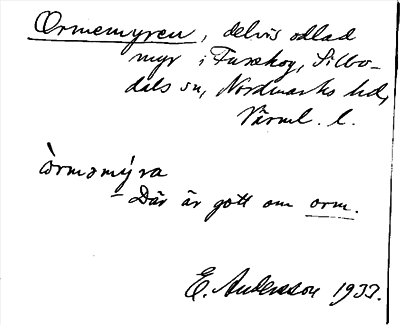 Ormemyren, delvis odlad
myr i Furskog, Silbo-
dals sn, Nordmarks hd,
Värml. l.
òrmamýra
– Där är gott om orm.
E. Andersson 1933.